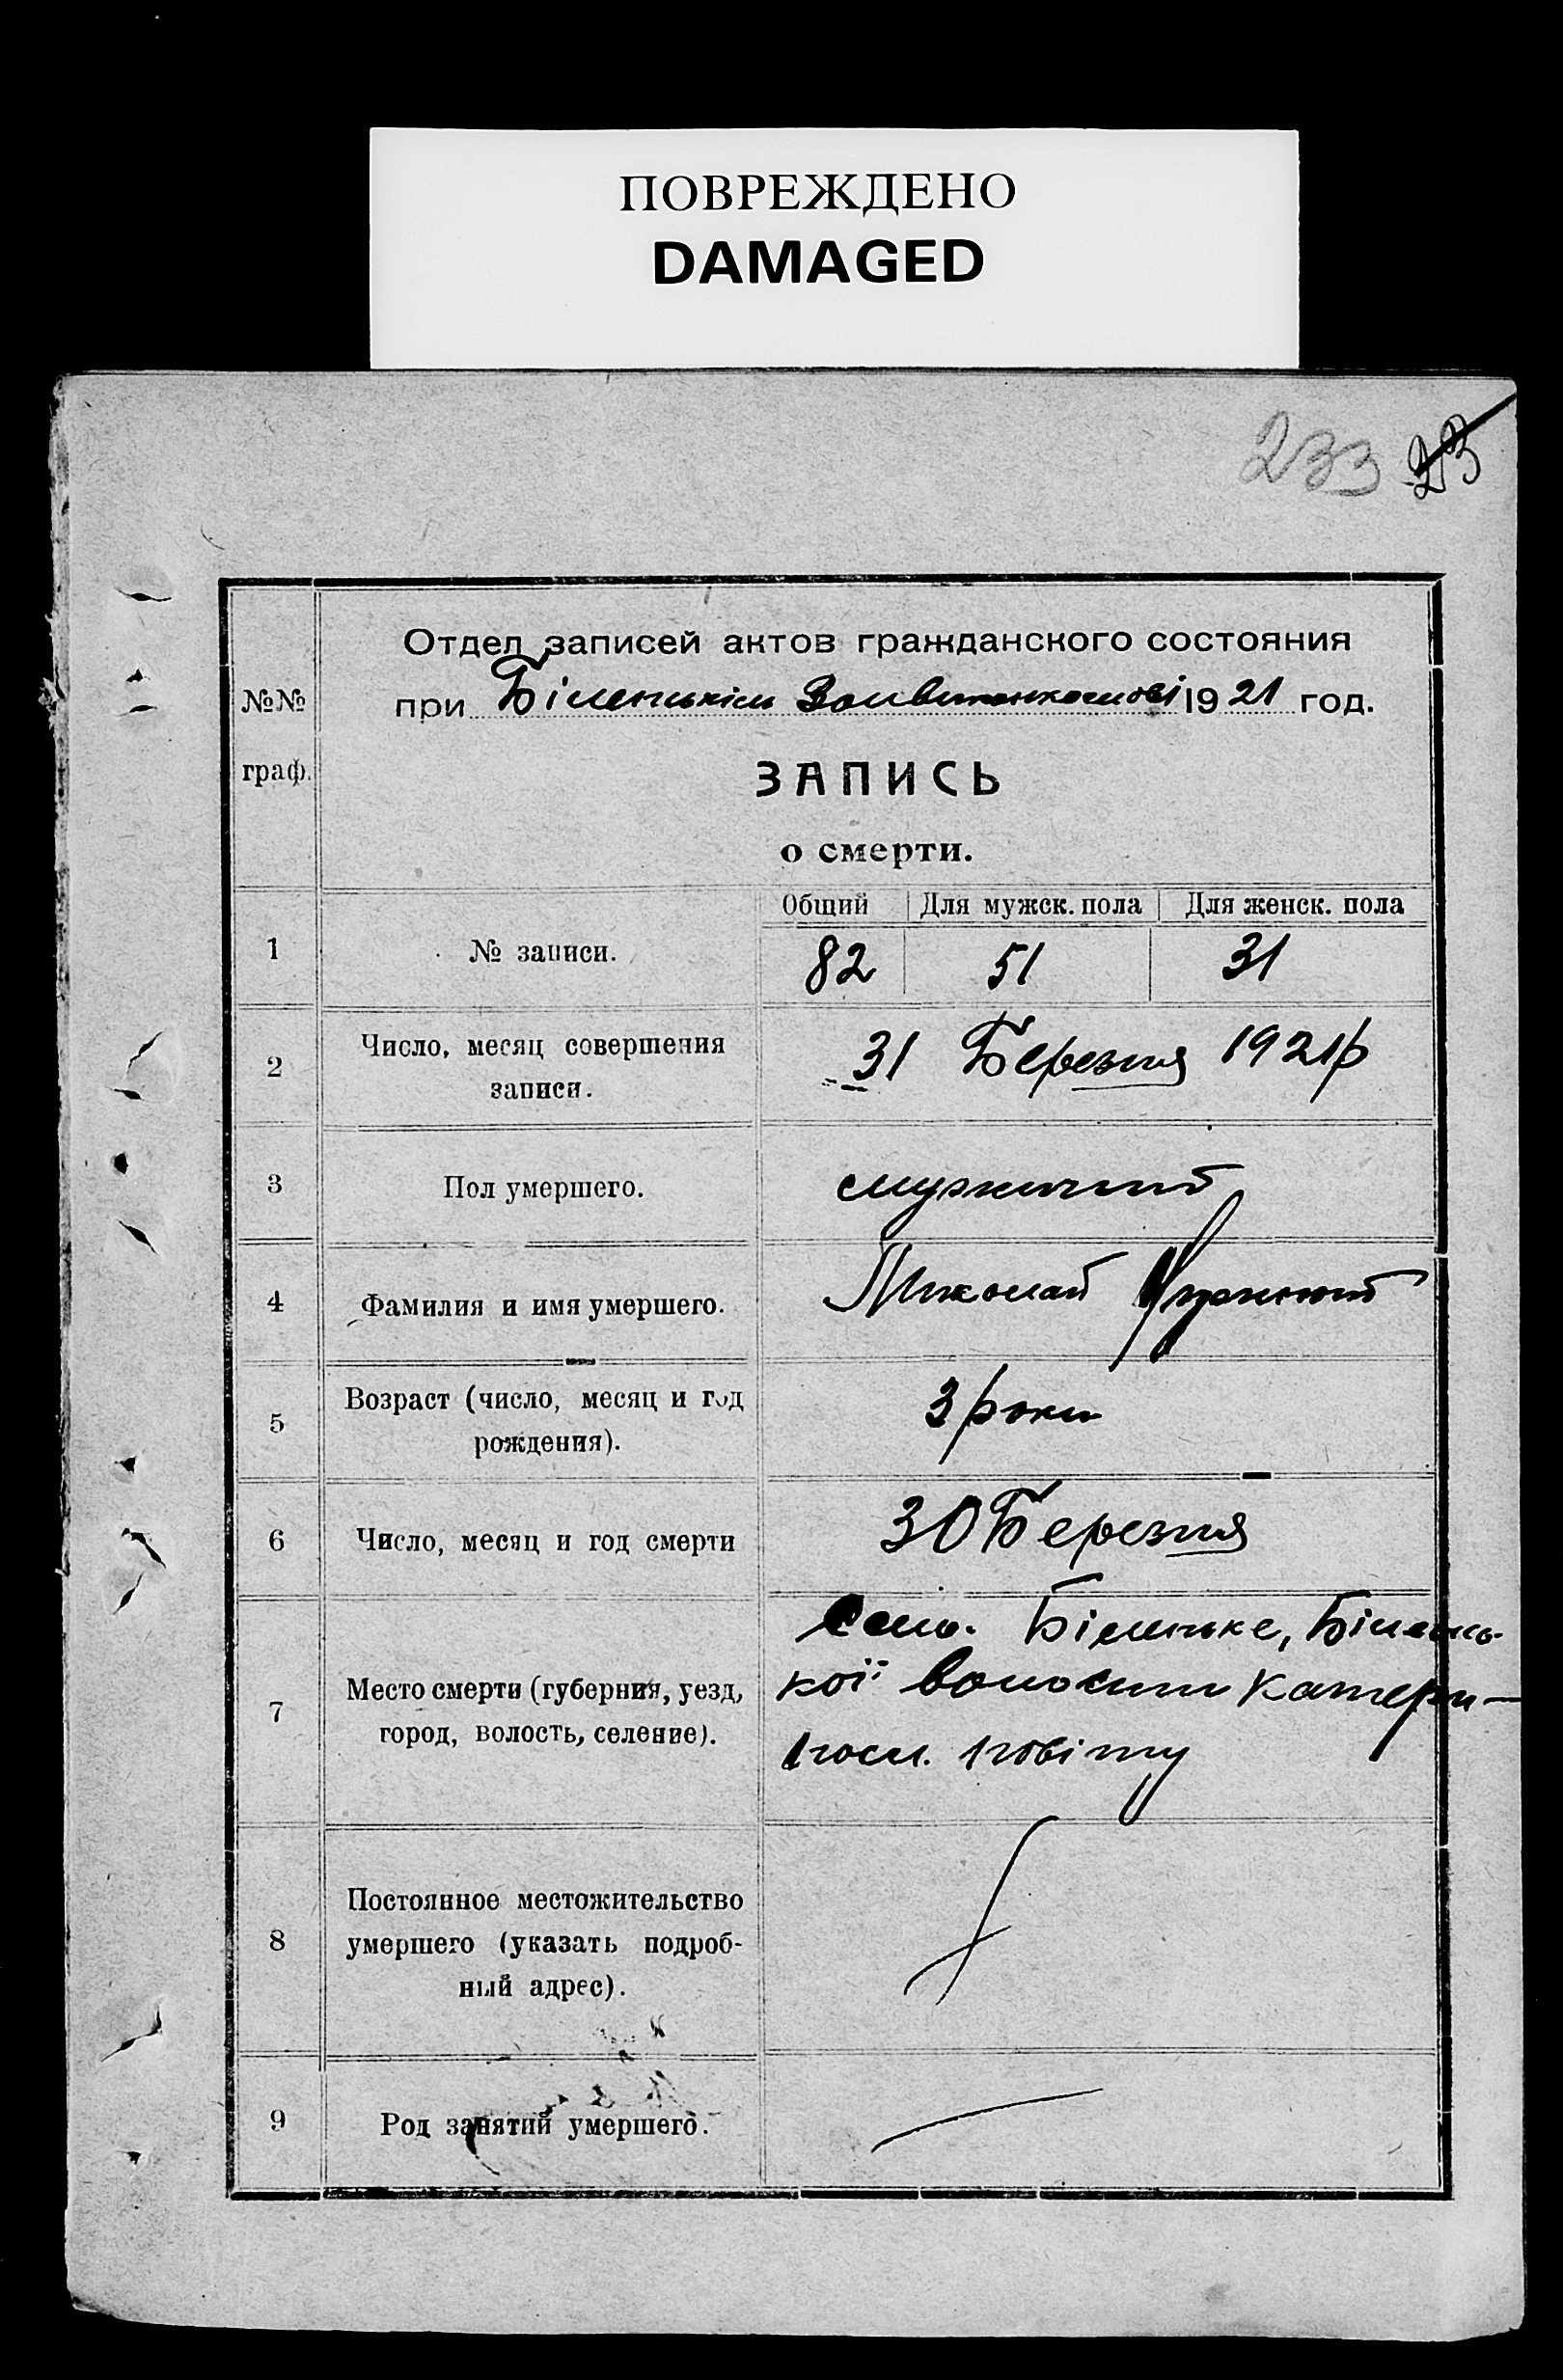 ПОВРЕЖДЕНО
DAMAGED
233 23
Отдел записей актов гражданского состояния
при Біленькім Волвиконкомові 1921 год.
№№
граф.
ЗАПИСЬ
о смерти.
Общий Для мужск. пола Для женск. пола
1 № записи. 82 51 31
2 Число, месяц совершения
записи.
31 Березня 1921р
3 Пол умершего. мужичий
4 Фамилия и имя умершего. Миколай
5 Возраст (число, месяц и год
рождения).
3 роки
6 Число, месяц и год смерти 30 Березня
7 Место смерти (губерния, уезд,
город, волость, селение).
Село. Біленьке, Білень-
кої волости Катери-
носл. повіту
8 Постоянное местожительство
умершего (указать подроб-
ный адрес).
9 Род занятий умершего.